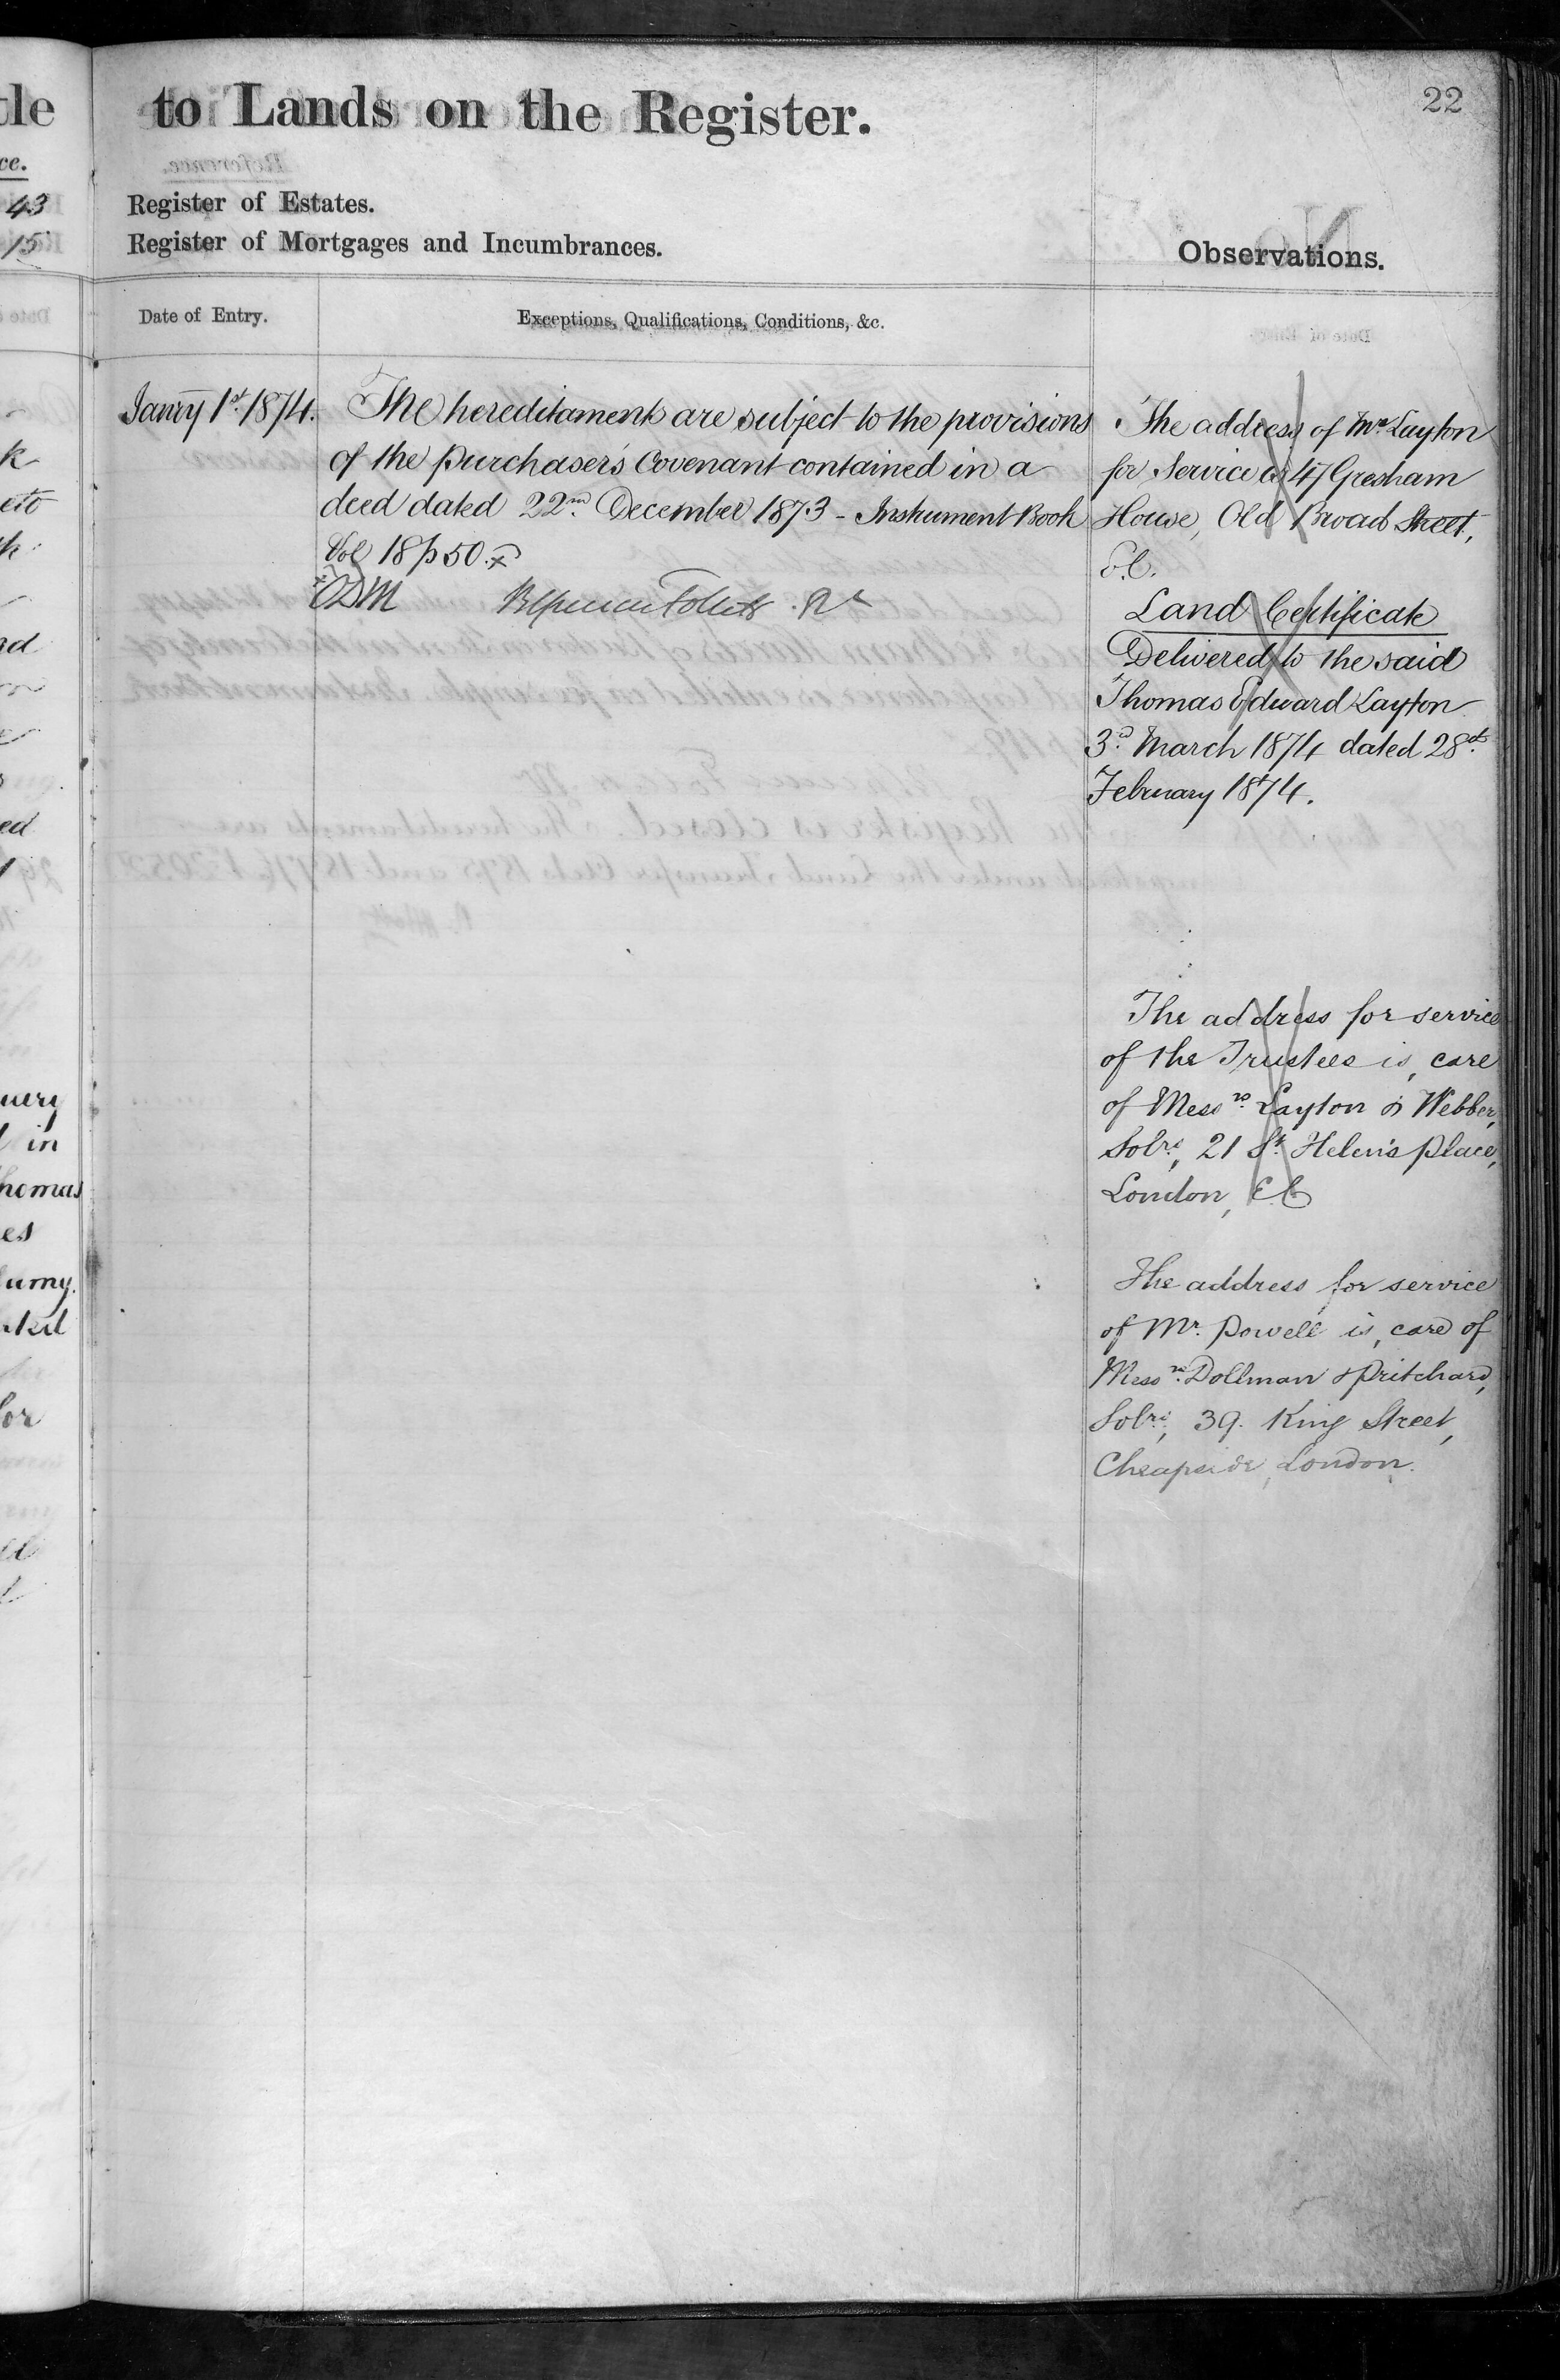 to Lands on the Register.
22
Register of Estates.
Register of Mortgages and Incumbrances.
Observations.
Date of Entry.
Exceptions, Qualifications, Conditions, &c.
Janry 1st 1874.
The hereditaments are subject to the provisions
of the purchaser's Covenant contained in a
deed dated 22nd December 1873 - Instrument Book
Vol 18 p 50. x
ODM
The address of Mr Layton
for Service is 47 Gresham
House, Old Broad Street,
E.C.
Land Certificate
Delivered to the said
Thomas Edward Layton
3rd March 1874 dated 28th
February 1874.
The address for service
of the Trustees is, care
of Messrs Layton & Webber,
Solrs, 21 St Helen's place,
London, E.C
The address for service
of Mr. Powell is, care of
Messrs. Dollman & Pritchard,
Solrs, 39. King Street,
Cheapside, London.